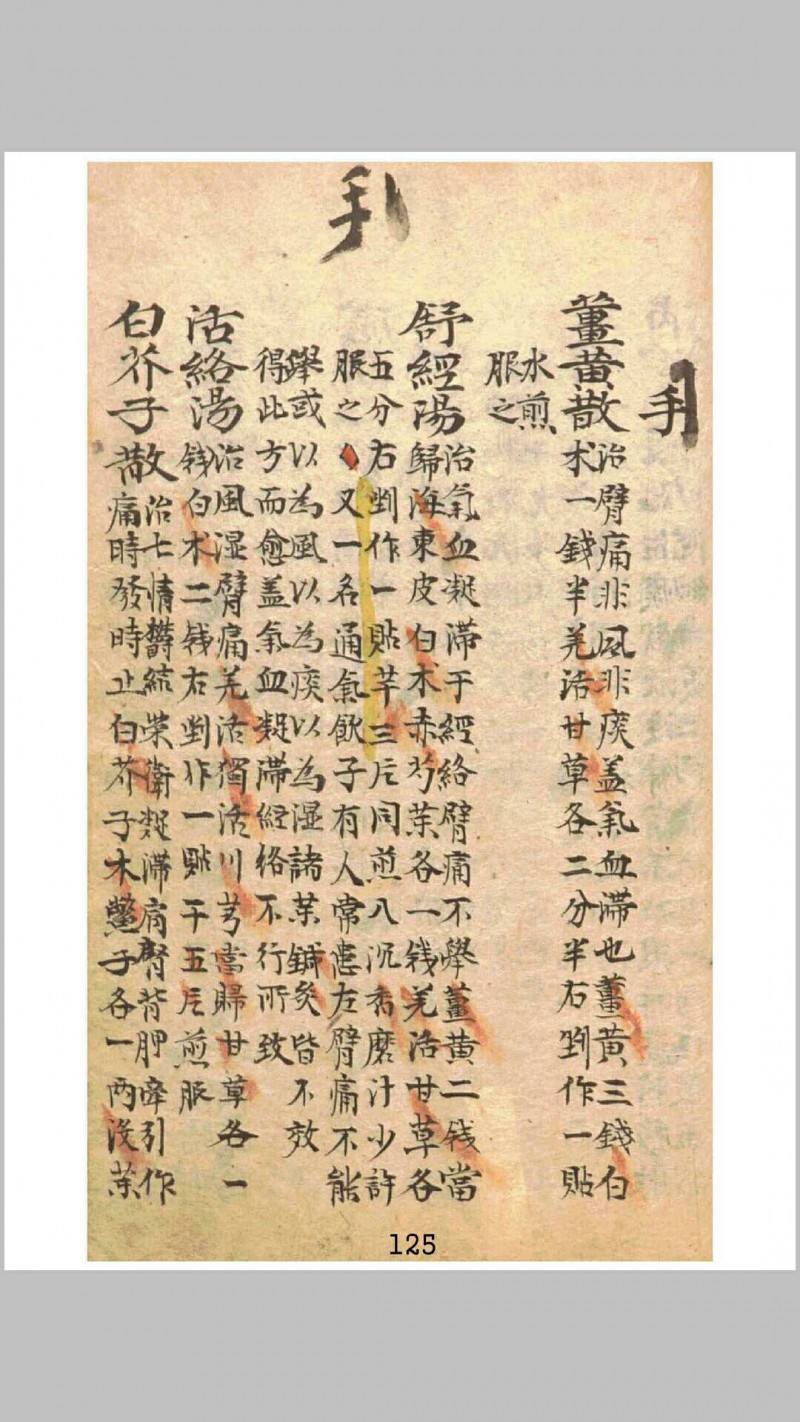 手
手
薑黄散治臂痛非風非痰盖氣血滞也薑黄三錢白
术一錢半羌活甘草各二分半右剉作一貼
水煎
服之
舒經陽治氣血凝滞于經絡臂痛不擧薑黄二錢當
歸海東皮白术赤芍薬各一钱羌活甘草各
五分右剉作一貼芉三片同煎入沉香磨汁少許
服之又一名通氣飲子有人常患左臂痛不能
擧或以為風以為痰以為湿諸薬鍼灸皆不效
得此方而愈盖氣血凝滞經络不行所致
活絡湯治風湿臂痛羌活獨活川芎當歸甘草各一
钱白术二钱右剉作一貼干五片煎服
白芥子散治七情欝結榮衛凝滞肩臂背胛牵引作
痛時發時止白芥子木鱉子各一两没薬
125